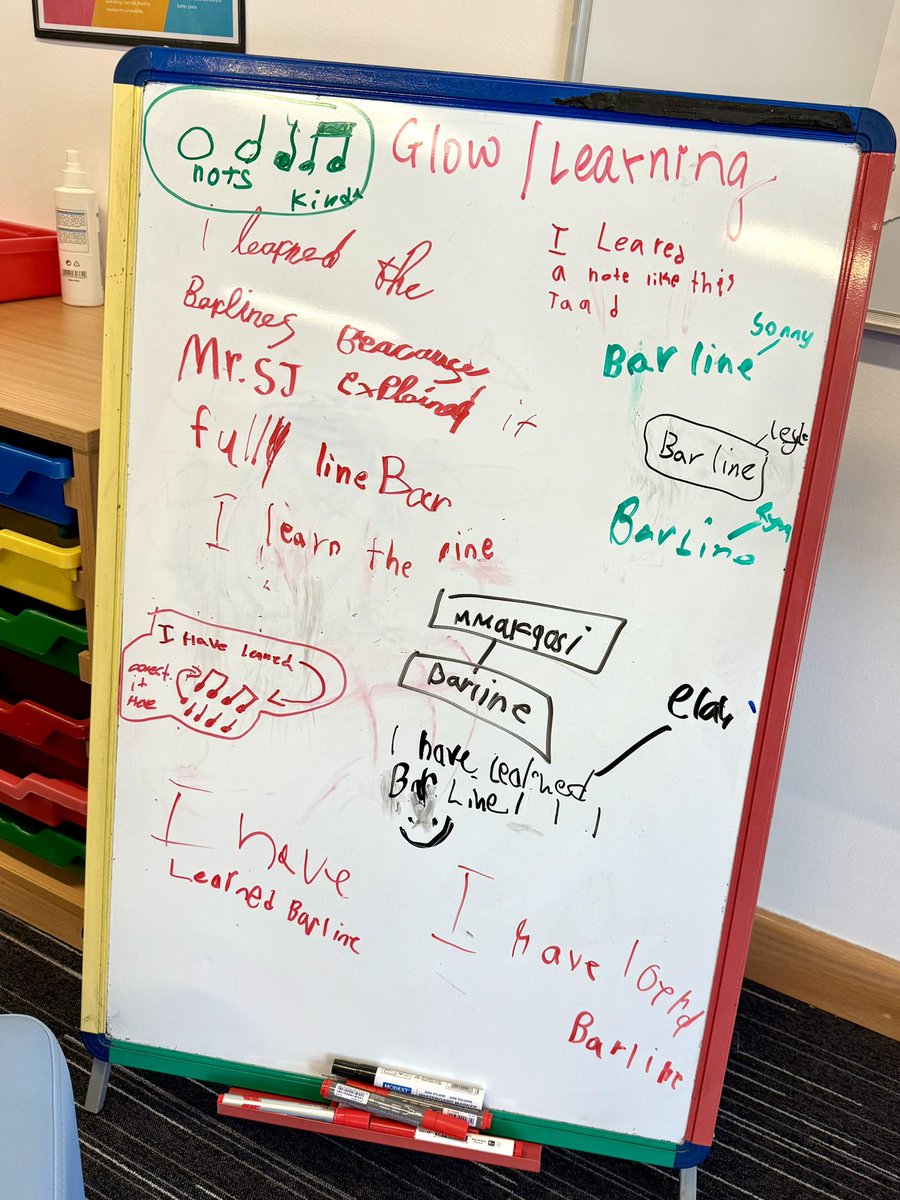 Glow / Learning
nots
kinds
I learned the
Barlines Beacause
Mr.SJ explained it
fully line Bar
I learn the nine
I Leared
a note like this
Taad
Sonny
Bar line
Bar line
BarLine
I Have learned
it
MMAKgosi
Barline
I have Learned
Bar Line
I have
Learned Barline
I have
Barline
MODEST